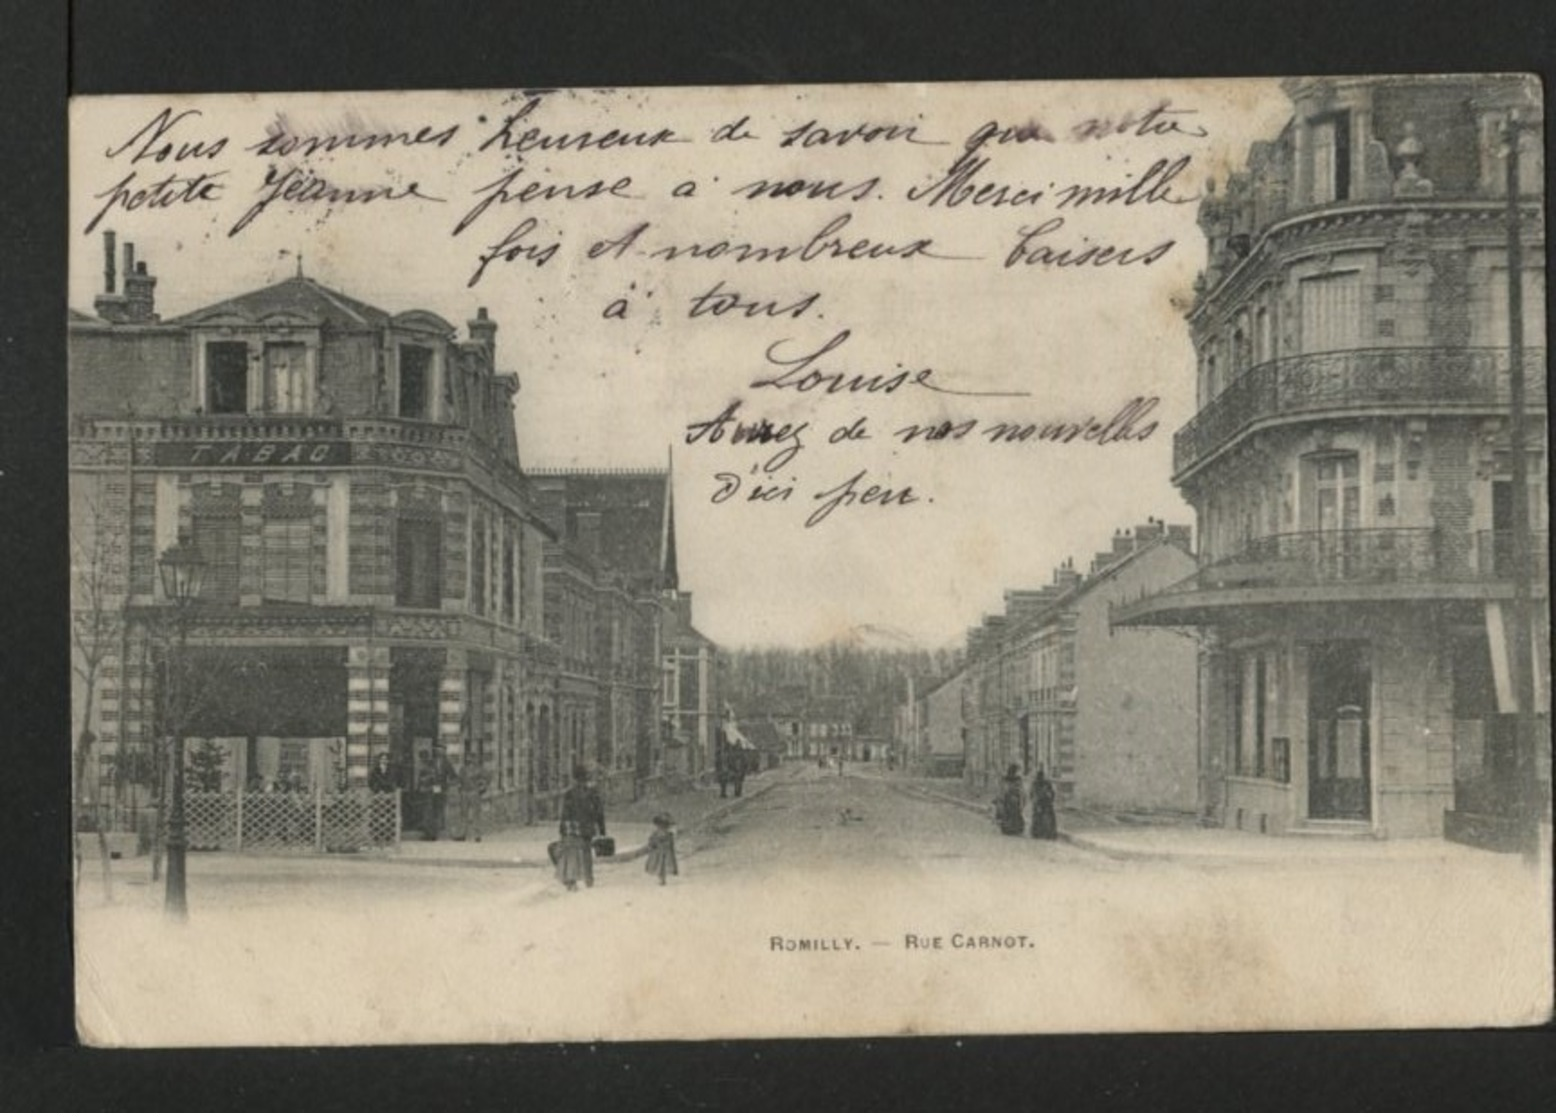 Nous sommes heureux de savoir que notre
petite Jeanne pense à nous. Merci mille
fois et nombreux baisers
à tous.
Louise
Aurez de nos nouvelles
d'ici peu.
TABAC
ROMILLY. — RUE CARNOT.